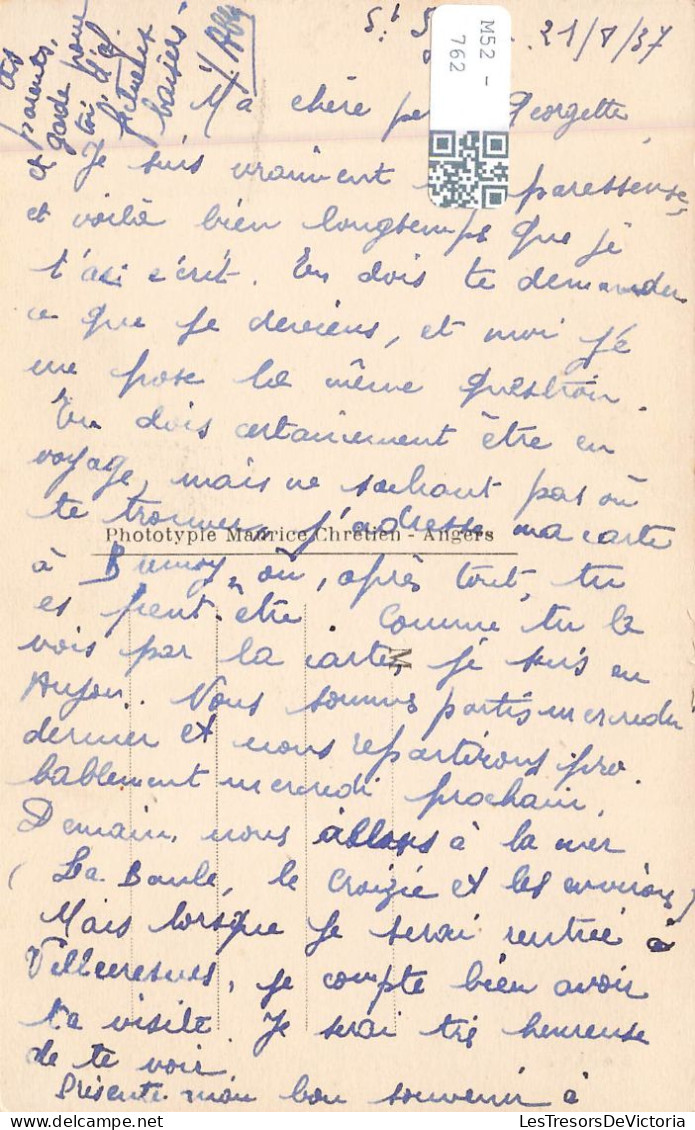 21/8/37
M52 -
762
Ma chère Georgette,
Je suis vraiment paresseuse,
et voilà bien longtemps que je
t'ai écrit. Tu dois te demander
ce que je deviens, et moi je
me pose la même question.
Tu dois certainement être en
voyage, mais ne sachant pas où
te trouver, j'adresse ma carte
Phototypie Maurice Chrétien - Angers
à Brunoy, où, après tout, tu
es peut-être. Comme tu le
vois par la carte, je suis en
M
Anjou. Nous sommes partis mercredi
dernier et nous repartirons pro-
bablement mercredi prochain.
Demain, nous allons à la mer
(La Baule, le Croizic et les environs)
Mais lorsque je serai rentrée à
Villecresnes, je compte bien avoir
ta visite. Je serai très heureuse
de te voir.
Présente mon bon souvenir à
tes
parents,
et garde pour
toi
baisers
LesTresorsDeVictoria
delcampe.net